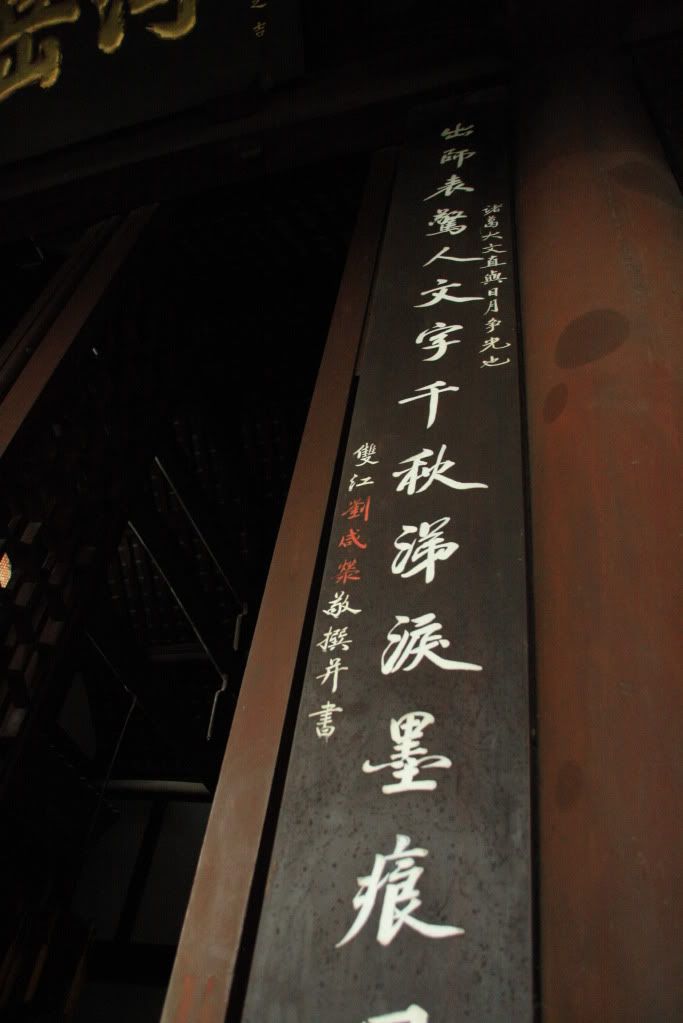 諸葛大文直與日月爭光也
出師表驚人文字千秋涕淚墨痕
雙江劉咸滎敬撰并書